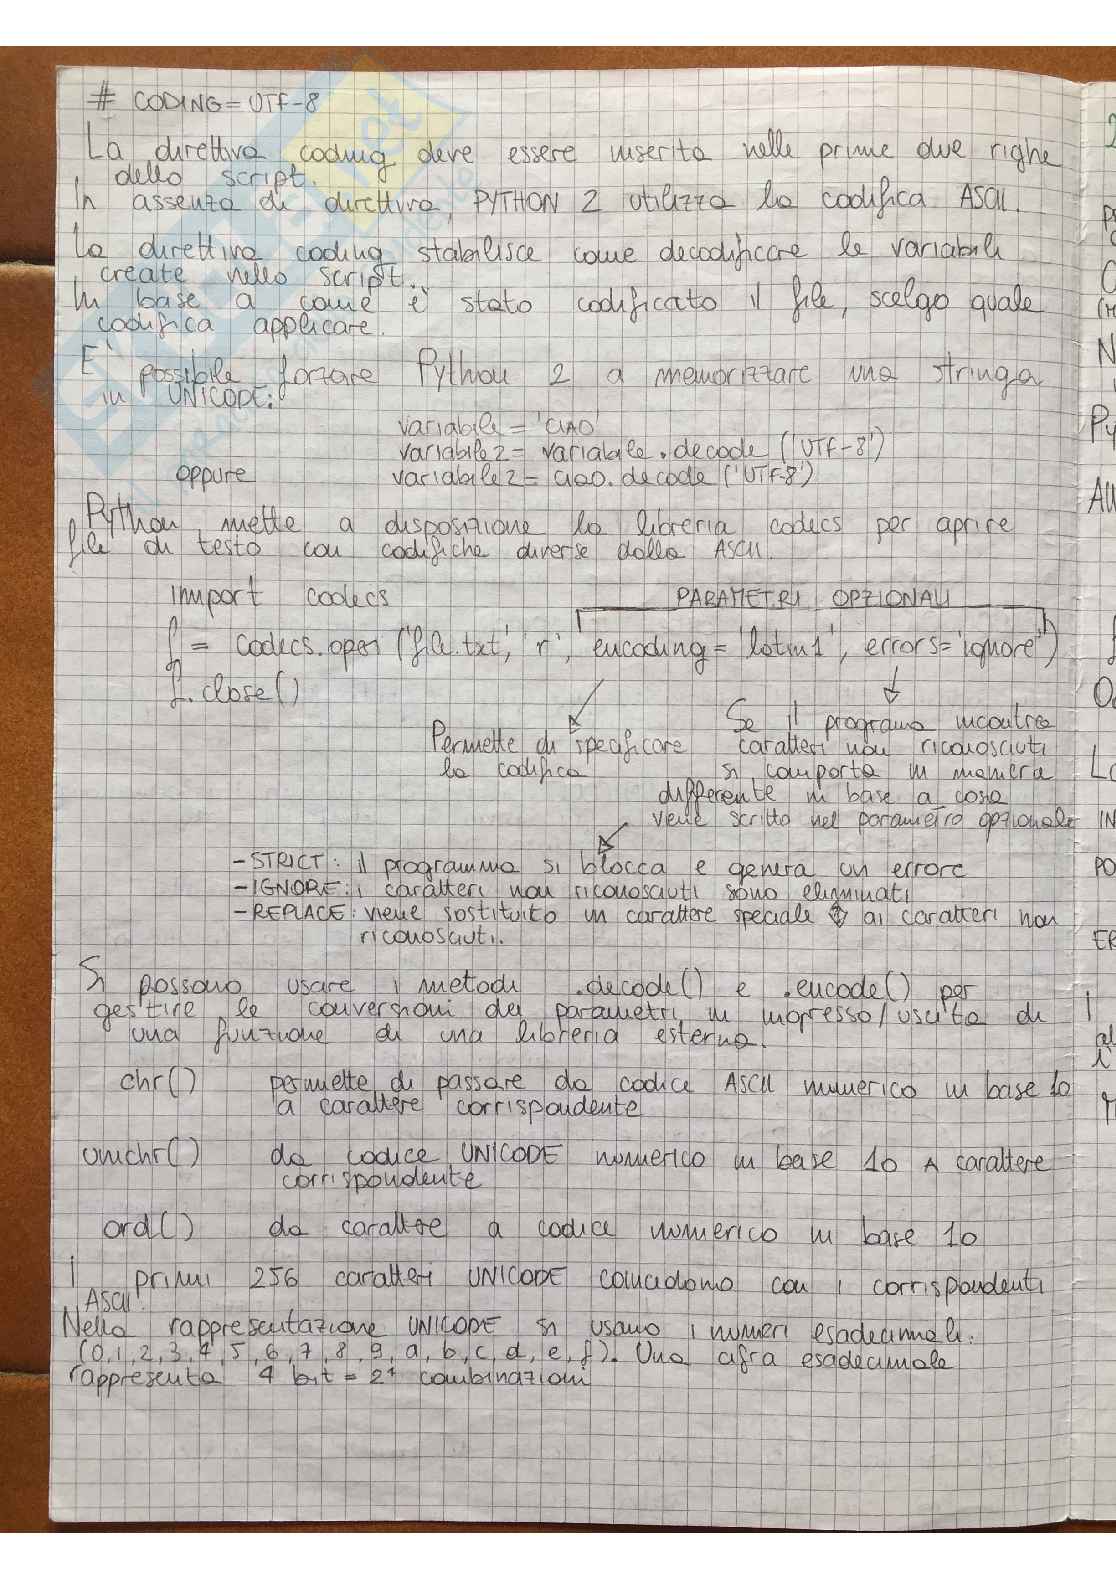 # CODING = UTF-8
La direttiva coding deve essere inserita nelle prime due righe
dello script.
In assenza di direttiva, PYTHON 2 utilizza la codifica ASCII.
La direttiva coding stabilisce come decodificare le variabili
create nello script.
In base a come è stato codificato il file, scelgo quale
codifica applicare.
E' possibile forzare Python 2 a memorizzare una stringa
in UNICODE:
variabile = 'CIAO'
variabile2 = variabile.decode ('UTF-8')
oppure variabile2 = ciao.decode ('UTF-8')
Python mette a disposizione la libreria codecs per aprire
file di testo con codifiche diverse dalla ASCII.
import codecs PARAMETRI OPZIONALI
f = codecs.open ('file.txt', 'r', encoding = 'latin1', errors='ignore')
f.close()
Permette di specificare
la codifica
Se il programa incontra
caratteri non riconosciuti
si comporta in maniera
differente in base a cosa
viene scritto nel parametro opzionale
- STRICT: il programma si blocca e genera un errore
- IGNORE: i caratteri non riconosciuti sono eliminati
- REPLACE: viene sostituito un carattere speciale ai caratteri non
riconosciuti.
Si possono usare i metodi .decode() e .encode() per
gestire le conversioni dei parametri in ingresso/uscita di
una funzione di una libreria esterna.
chr() permette di passare da codice ASCII numerico in base 10
a carattere corrispondente
unichr() da codice UNICODE numerico in base 10 A carattere
corrispondente
ord() da carattere a codice numerico in base 10
I primi 256 caratteri UNICODE coincidono con i corrispondenti
ASCII.
Nella rappresentazione UNICODE si usano i numeri esadecimali.
(0,1,2,3,4,5,6,7,8,9,a,b,c,d,e,f). Una cifra esadecimale
rappresenta 4 bit = 2⁴ combinazioni